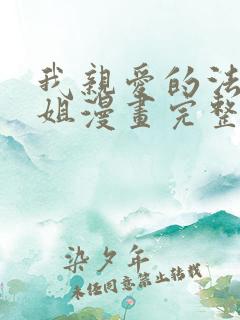 我親愛的法
姐漫畫完整
染夕年
未经同意禁止转载